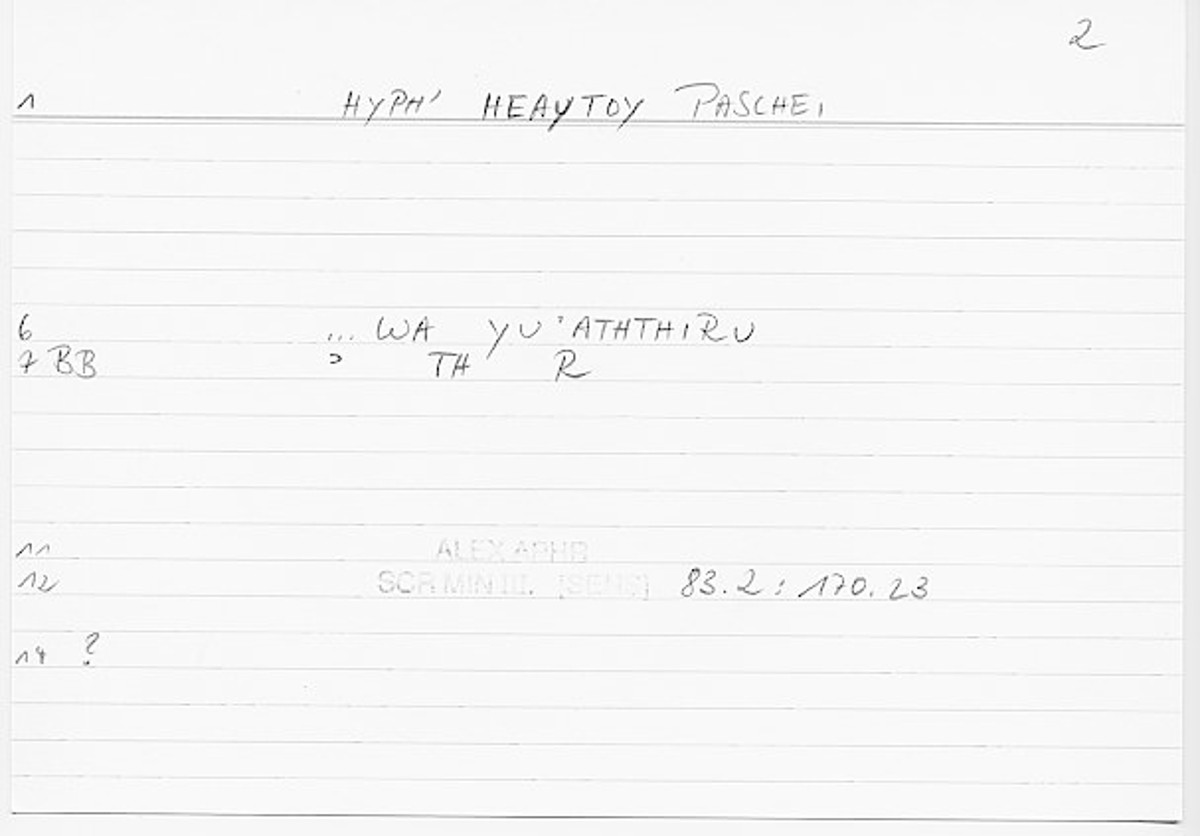 2
1 HYPH' HEAYTOY PASCHEI
6 ... WA YU'ATHTHIRU
7 BB > TH R
11 ALEX.APHR
12 SCR MIN III. [SENS] 83.2 : 170.23
14 ?